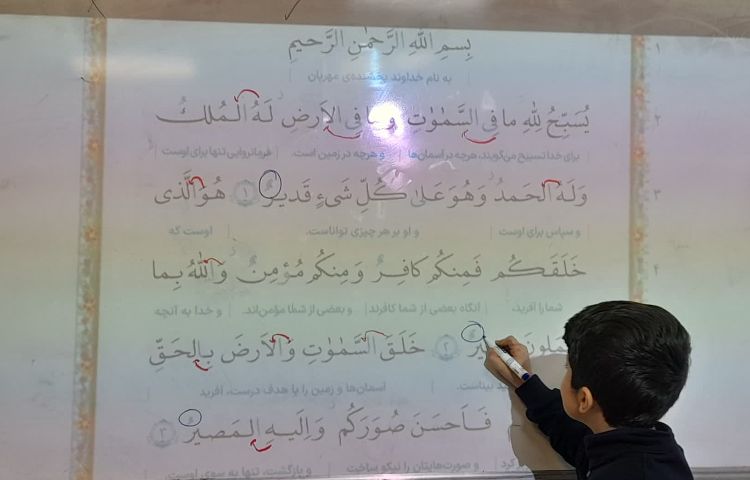 ۱
بِسمِ اللهِ الرَّحمٰنِ الرَّحیمِ
به نام خداوند بخشنده‌ی مهربان
۲
یُسَبِّحُ لِلّٰهِ ما فِی السَّمٰوٰتِ وَ ما فِی الاَرضِ لَهُ المُلکُ
برای خدا تسبیح می‌گویند، هرچه در آسمان‌ها و هرچه در زمین است. فرمانروایی تنها برای اوست
۳
وَ لَهُ الحَمدُ وَ هُوَ عَلیٰ کُلِّ شَیءٍ قَدیرٌ ۱ هُوَ الَّذی
و سپاس برای اوست و او بر هر چیزی تواناست. اوست که
۴
خَلَقَکُم فَمِنکُم کافِرٌ وَ مِنکُم مُؤمِنٌ وَ اللّٰهُ بِما
شما را آفرید، آنگاه بعضی از شما کافرند و بعضی از شما مؤمن‌اند. و خدا به آنچه
۲ خَلَقَ السَّمٰوٰتِ وَ الاَرضَ بِالحَقِّ
بیناست. آسمان‌ها و زمین را با هدف درست، آفرید
فَاَحسَنَ صُوَرَکُم وَ اِلَیهِ المَصیرُ ۳
کرد و صورت‌هایتان را نیکو ساخت و بازگشت، تنها به سوی اوست.